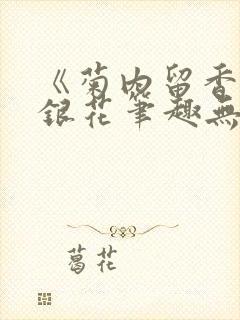 《菊内留香
銀花筆趣無
葛花